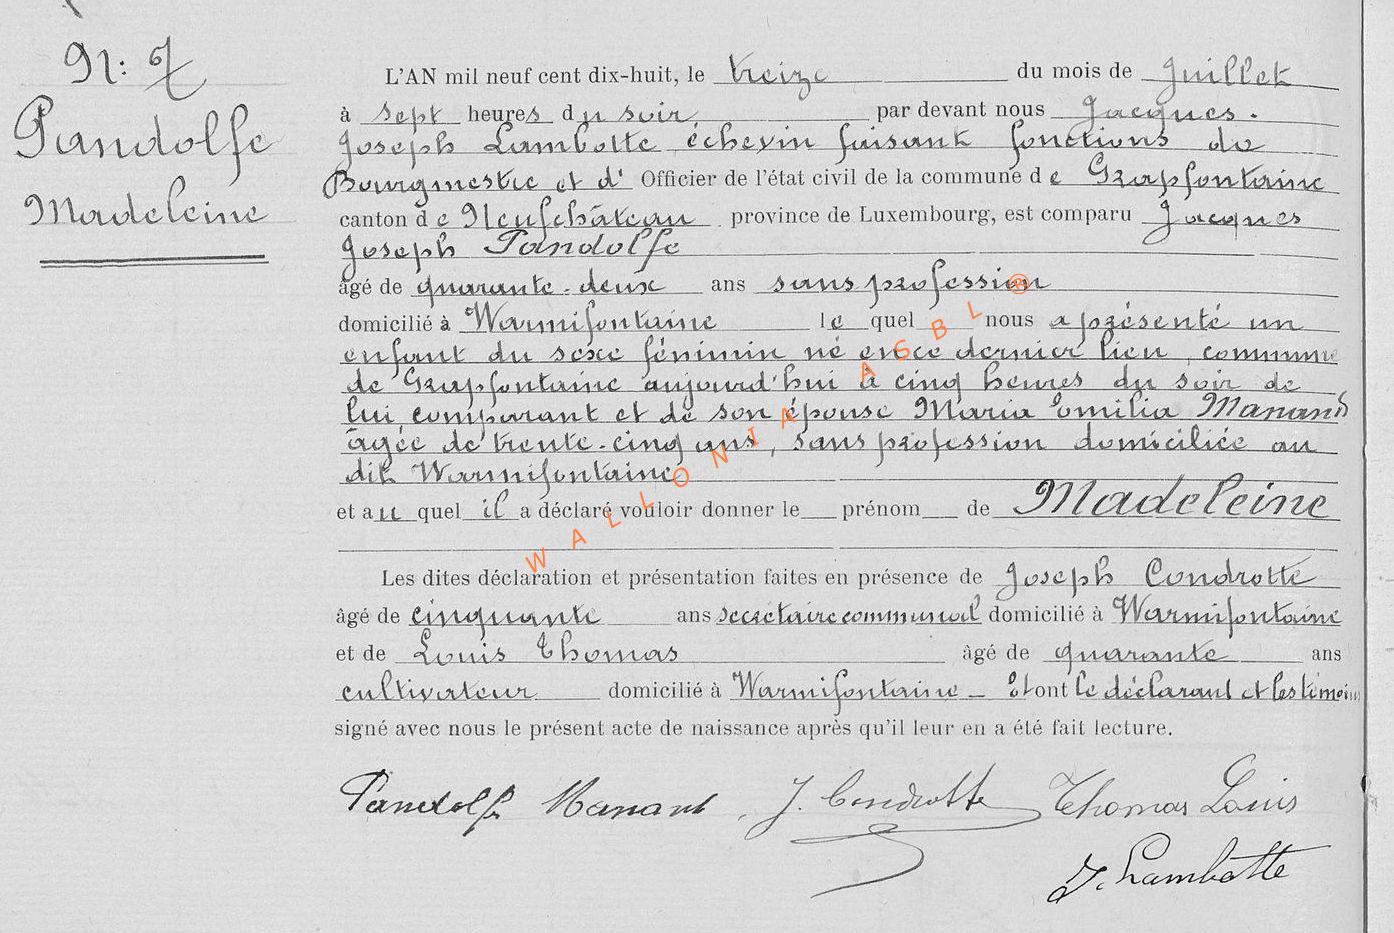 N: 7
Pandolfe
Madeleine
L'AN mil neuf cent dix-huit, le treize du mois de Juillet
à sept heures du soir, par devant nous Jacques.
Joseph Lambotte échevin faisant fonctions de
Bourgmestre et d' Officier de l'état civil de la commune de Grapfontaine
canton de Neufchâteau province de Luxembourg, est comparu Jacques
Joseph Pandolfe
âgé de quarante-deux ans sans profession
domicilié à Warmifontaine le quel nous a présenté un
enfant du sexe féminin né en ce dernier lieu, commune
de Grapfontaine aujourd'hui à cinq heures du soir de
lui comparant et de son épouse Maria Emilia Manand
âgée de trente-cinq ans, sans profession domiciliée au
dit Warmifontaine
et au quel il a déclaré vouloir donner le prénom de Madeleine
Les dites déclaration et présentation faites en présence de Joseph Condrotte
âgé de cinquante ans secrétaire communal domicilié à Warmifontaine
et de Louis Thomas âgé de quarante ans
cultivateur domicilié à Warmifontaine _ Et ont le déclarant et les témoins
signé avec nous le présent acte de naissance après qu'il leur en a été fait lecture.
Pandolfe Manant J. Condrotte Thomas Louis
J. Lambotte
WALLONIA ASBL ®